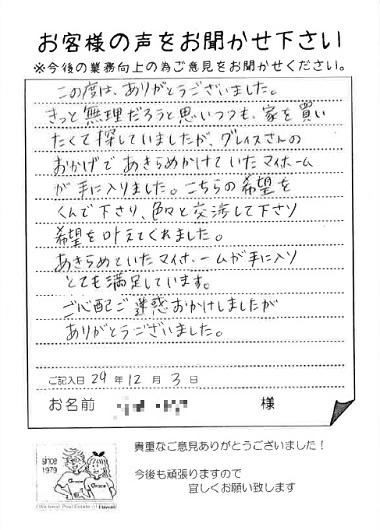 お客様の声をお聞かせ下さい
※今後の業務向上の為ご意見をお聞かせください。
この度は、ありがとうございました。
きっと無理だろうと思いつつも、家を買い
たくて探していましたが、グレイスさんの
おかげであきらめかけていたマイホーム
が手に入りました。こちらの希望を
くんで下さり、色々と交渉して下さり
希望を叶えてくれました。
あきらめていたマイホームが手に入り
とても満足しています。
ご心配ご迷惑おかけしましたが
ありがとうございました。
ご記入日 29 年 12 月 3 日
お名前 様
since
1979
貴重なご意見ありがとうございました!
今後も頑張りますので
宜しくお願い致します